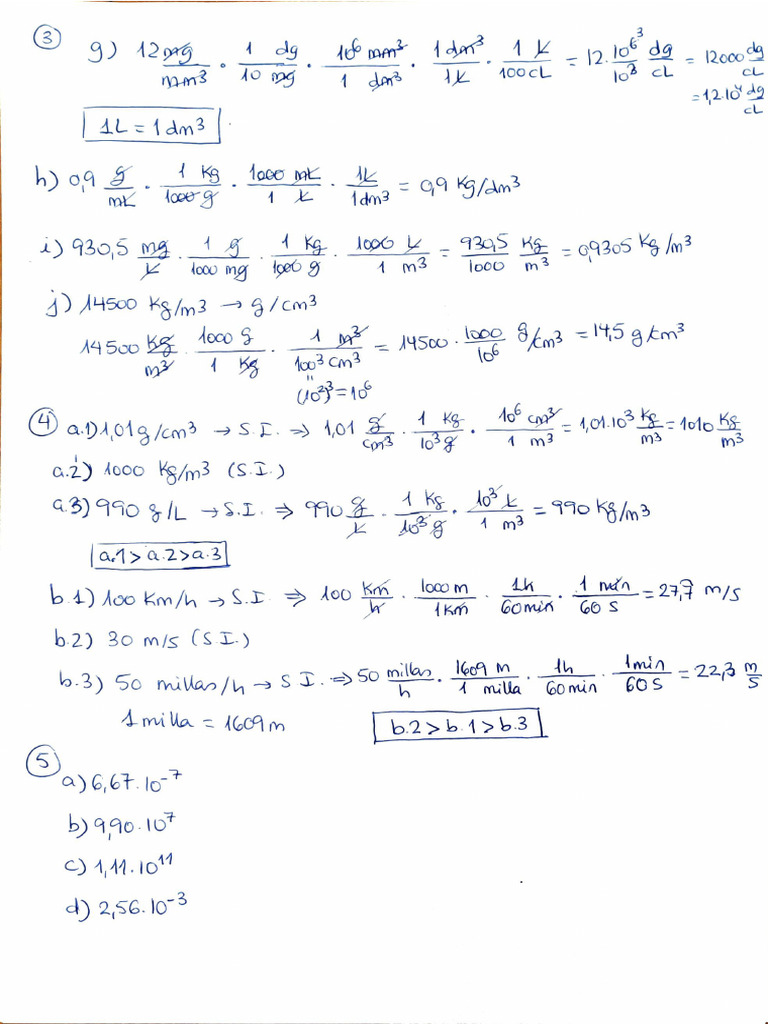 ③
g) 12 mg/mm³ · 1 dg/10 mg · 10⁶ mm³/1 dm³ · 1 dm³/1 L · 1 L/100 cL = 12 · 10⁶/10³ dg/cL = 12000 dg/cL
= 1,2·10⁴ dg/cL
1L = 1dm³
h) 0,9 g/mL · 1 Kg/1000 g · 1000 mL/1 L · 1L/1dm³ = 0,9 Kg/dm³
i) 930,5 mg/L · 1 g/1000 mg · 1 Kg/1000 g · 1000 L/1 m³ = 930,5/1000 Kg/m³ = 0,9305 Kg/m³
j) 14500 Kg/m³ → g/cm³
14500 Kg/m³ · 1000 g/1 Kg · 1 m³/100³ cm³ = 14500 · 1000/10⁶ g/cm³ = 14,5 g/cm³
"
(10²)³ = 10⁶
④ a.1) 1,01 g/cm³ → S.I. ⇒ 1,01 g/cm³ · 1 Kg/10³ g · 10⁶ cm³/1 m³ = 1,01·10³ Kg/m³ = 1010 Kg/m³
a.2) 1000 Kg/m³ (S.I.)
a.3) 990 g/L → S.I. ⇒ 990 g/L · 1 Kg/10³ g · 10³ L/1 m³ = 990 Kg/m³
a.1 > a.2 > a.3
b.1) 100 Km/h → S.I. ⇒ 100 Km/h · 1000 m/1 Km · 1h/60 min · 1 min/60 s = 27,7 m/s
b.2) 30 m/s (S.I.)
b.3) 50 millas/h → S I. ⇒ 50 millas/h · 1609 m/1 milla · 1h/60 min · 1min/60 s = 22,3 m/s
1 milla = 1609 m
b.2 > b.1 > b.3
⑤
a) 6,67·10⁻⁷
b) 9,90·10⁷
c) 1,11·10¹¹
d) 2,56·10⁻³